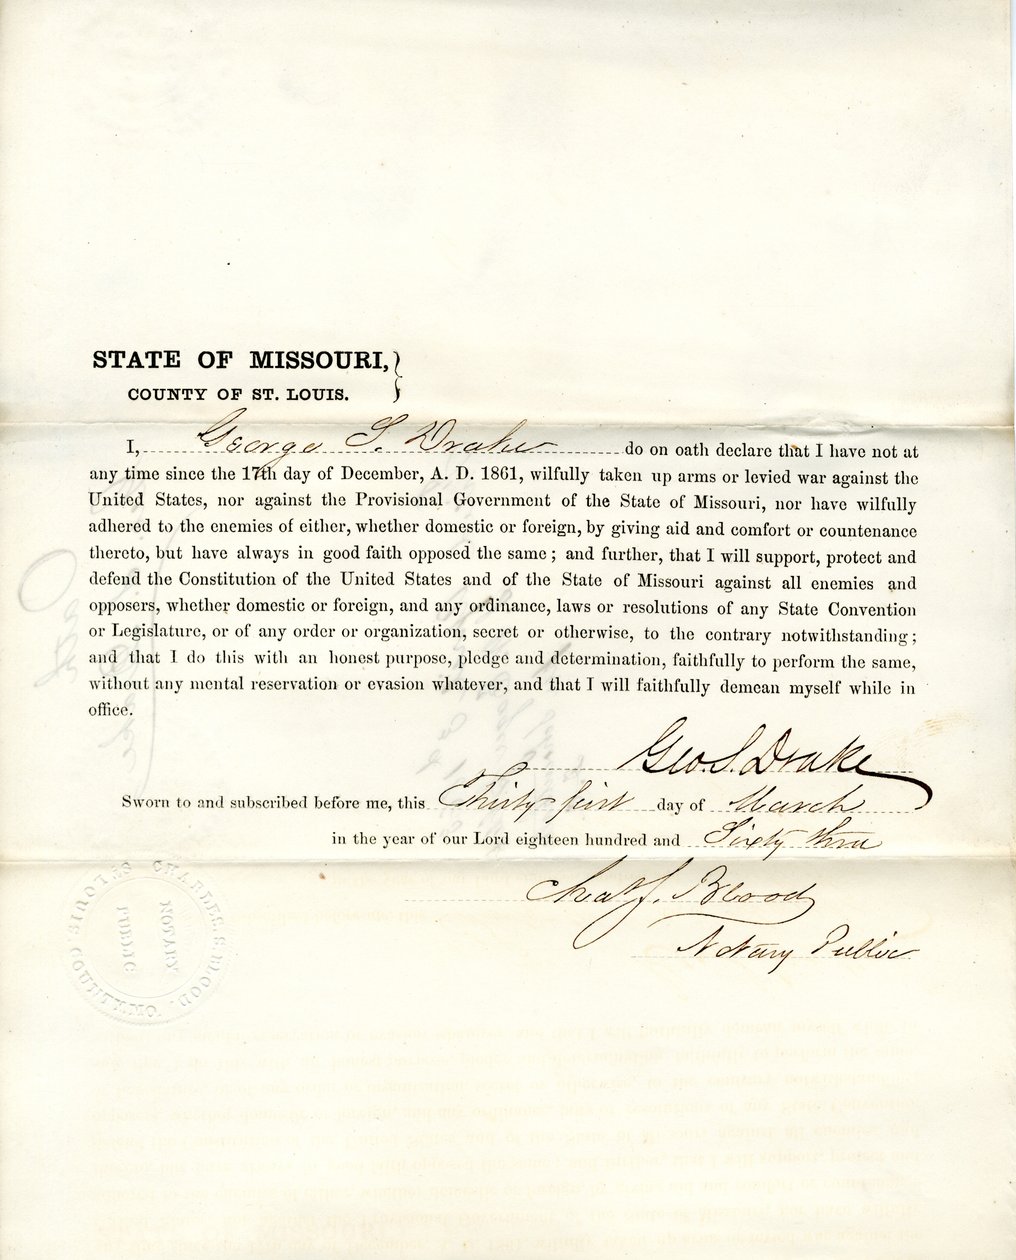 STATE OF MISSOURI,
COUNTY OF ST. LOUIS.
I, George S. Drake do on oath declare that I have not at
any time since the 17th day of December, A. D. 1861, wilfully taken up arms or levied war against the
United States, nor against the Provisional Government of the State of Missouri, nor have wilfully
adhered to the enemies of either, whether domestic or foreign, by giving aid and comfort or countenance
thereto, but have always in good faith opposed the same; and further, that I will support, protect and
defend the Constitution of the United States and of the State of Missouri against all enemies and
opposers, whether domestic or foreign, and any ordinance, laws or resolutions of any State Convention
or Legislature, or of any order or organization, secret or otherwise, to the contrary notwithstanding;
and that I do this with an honest purpose, pledge and determination, faithfully to perform the same,
without any mental reservation or evasion whatever, and that I will faithfully demean myself while in
office.
Geo. S. Drake
Sworn to and subscribed before me, this Thirty first day of March
in the year of our Lord eighteen hundred and Sixty three
Chas F. Blood
Notary Public
CHARLES F. BLOOD.
ST LOUIS COUNTY MO.
NOTARY
PUBLIC